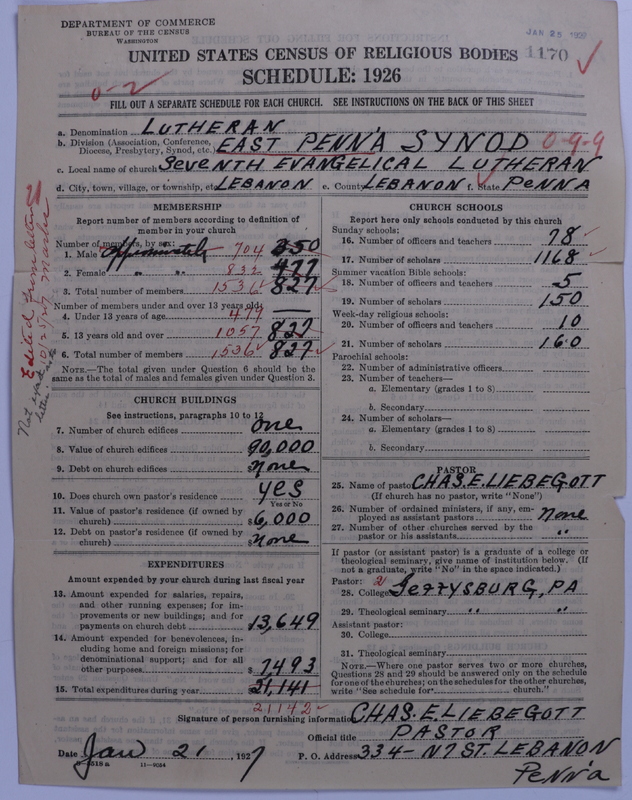 DEPARTMENT OF COMMERCE
BUREAU OF THE CENSUS
WASHINGTON
JAN 25 1927
UNITED STATES CENSUS OF RELIGIOUS BODIES 1170
SCHEDULE: 1926
0-2
FILL OUT A SEPARATE SCHEDULE FOR EACH CHURCH. SEE INSTRUCTIONS ON THE BACK OF THIS SHEET
a. Denomination LUTHERAN
b. Division (Association, Conference, Diocese, Presbytery, Synod, etc.) EAST PENNA SYNOD 0-9-9
c. Local name of church SEVENTH EVANGELICAL LUTHERAN
d. City, town, village, or township, etc. LEBANON e. County LEBANON f. State PENNA
MEMBERSHIP
Report number of members according to definition of
member in your church
Number of members, by sex:
1. Male Approximately 704 350
2. Female " " 832 477
3. Total number of members 1536 827
Number of members under and over 13 years old:
4. Under 13 years of age 479 —
5. 13 years old and over 1057 827
6. Total number of members 1536 827
NOTE.—The total given under Question 6 should be
same as the total of males and females given under Question 3.
Edited from letter
10-25-27
CHURCH BUILDINGS
See instructions, paragraphs 10 to 12
7. Number of church edifices one
8. Value of church edifices $90,000
9. Debt on church edifices $none
10. Does church own pastor's residence yes
Yes or No
11. Value of pastor's residence (if owned by
church) $6,000
12. Debt on pastor's residence (if owned by
church) $none
EXPENDITURES
Amount expended by your church during last fiscal year
13. Amount expended for salaries, repairs,
and other running expenses; for im-
provements or new buildings; and for
payments on church debt $13,649
14. Amount expended for benevolences, in-
cluding home and foreign missions; for
denominational support; and for all
other purposes $7493
15. Total expenditures during year $21,141
21142
CHURCH SCHOOLS
Report here only schools conducted by this church
Sunday schools:
16. Number of officers and teachers 78
17. Number of scholars 1168
Summer vacation Bible schools:
18. Number of officers and teachers 5
19. Number of scholars 150
Week-day religious schools:
20. Number of officers and teachers 10
21. Number of scholars 160
Parochial schools:
22. Number of administrative officers
23. Number of teachers—
a. Elementary (grades 1 to 8)
b. Secondary
24. Number of scholars—
a. Elementary (grades 1 to 8)
b. Secondary
PASTOR
25. Name of pastor CHAS. E. LIEBEGOTT
(If church has no pastor, write "None")
26. Number of ordained ministers, if any, em-
ployed as assistant pastors none
27. Number of other churches served by the
pastor or his assistants "
If pastor (or assistant pastor) is a graduate of a college or
theological seminary, give name of institution below. (If
not a graduate, write "No" in the space indicated.)
Pastor: 2
28. College GETTYSBURG, PA
29. Theological seminary " "
Assistant pastor:
30. College
31. Theological seminary
NOTE.—Where one pastor serves two or more churches,
Questions 28 and 29 should be answered only on the schedule
for one of the churches; on the schedules for the other churches,
write "See schedule for church."
Signature of person furnishing information CHAS. E. LIEBEGOTT
Official title PASTOR
Date Jan 21, 1927 P. O. Address 334- N 7 ST. LEBANON
Penn'a
8518 a 11—9054